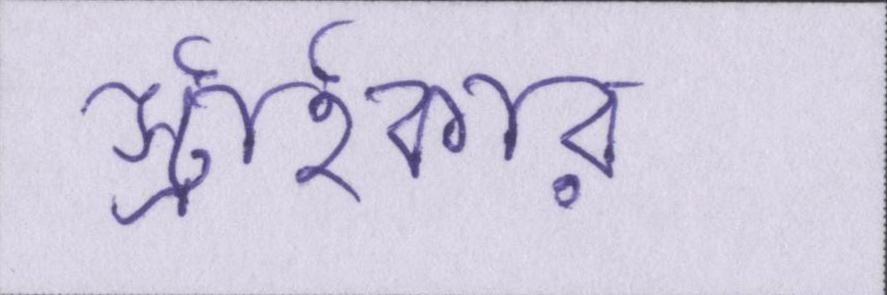 স্ট্রাইকার